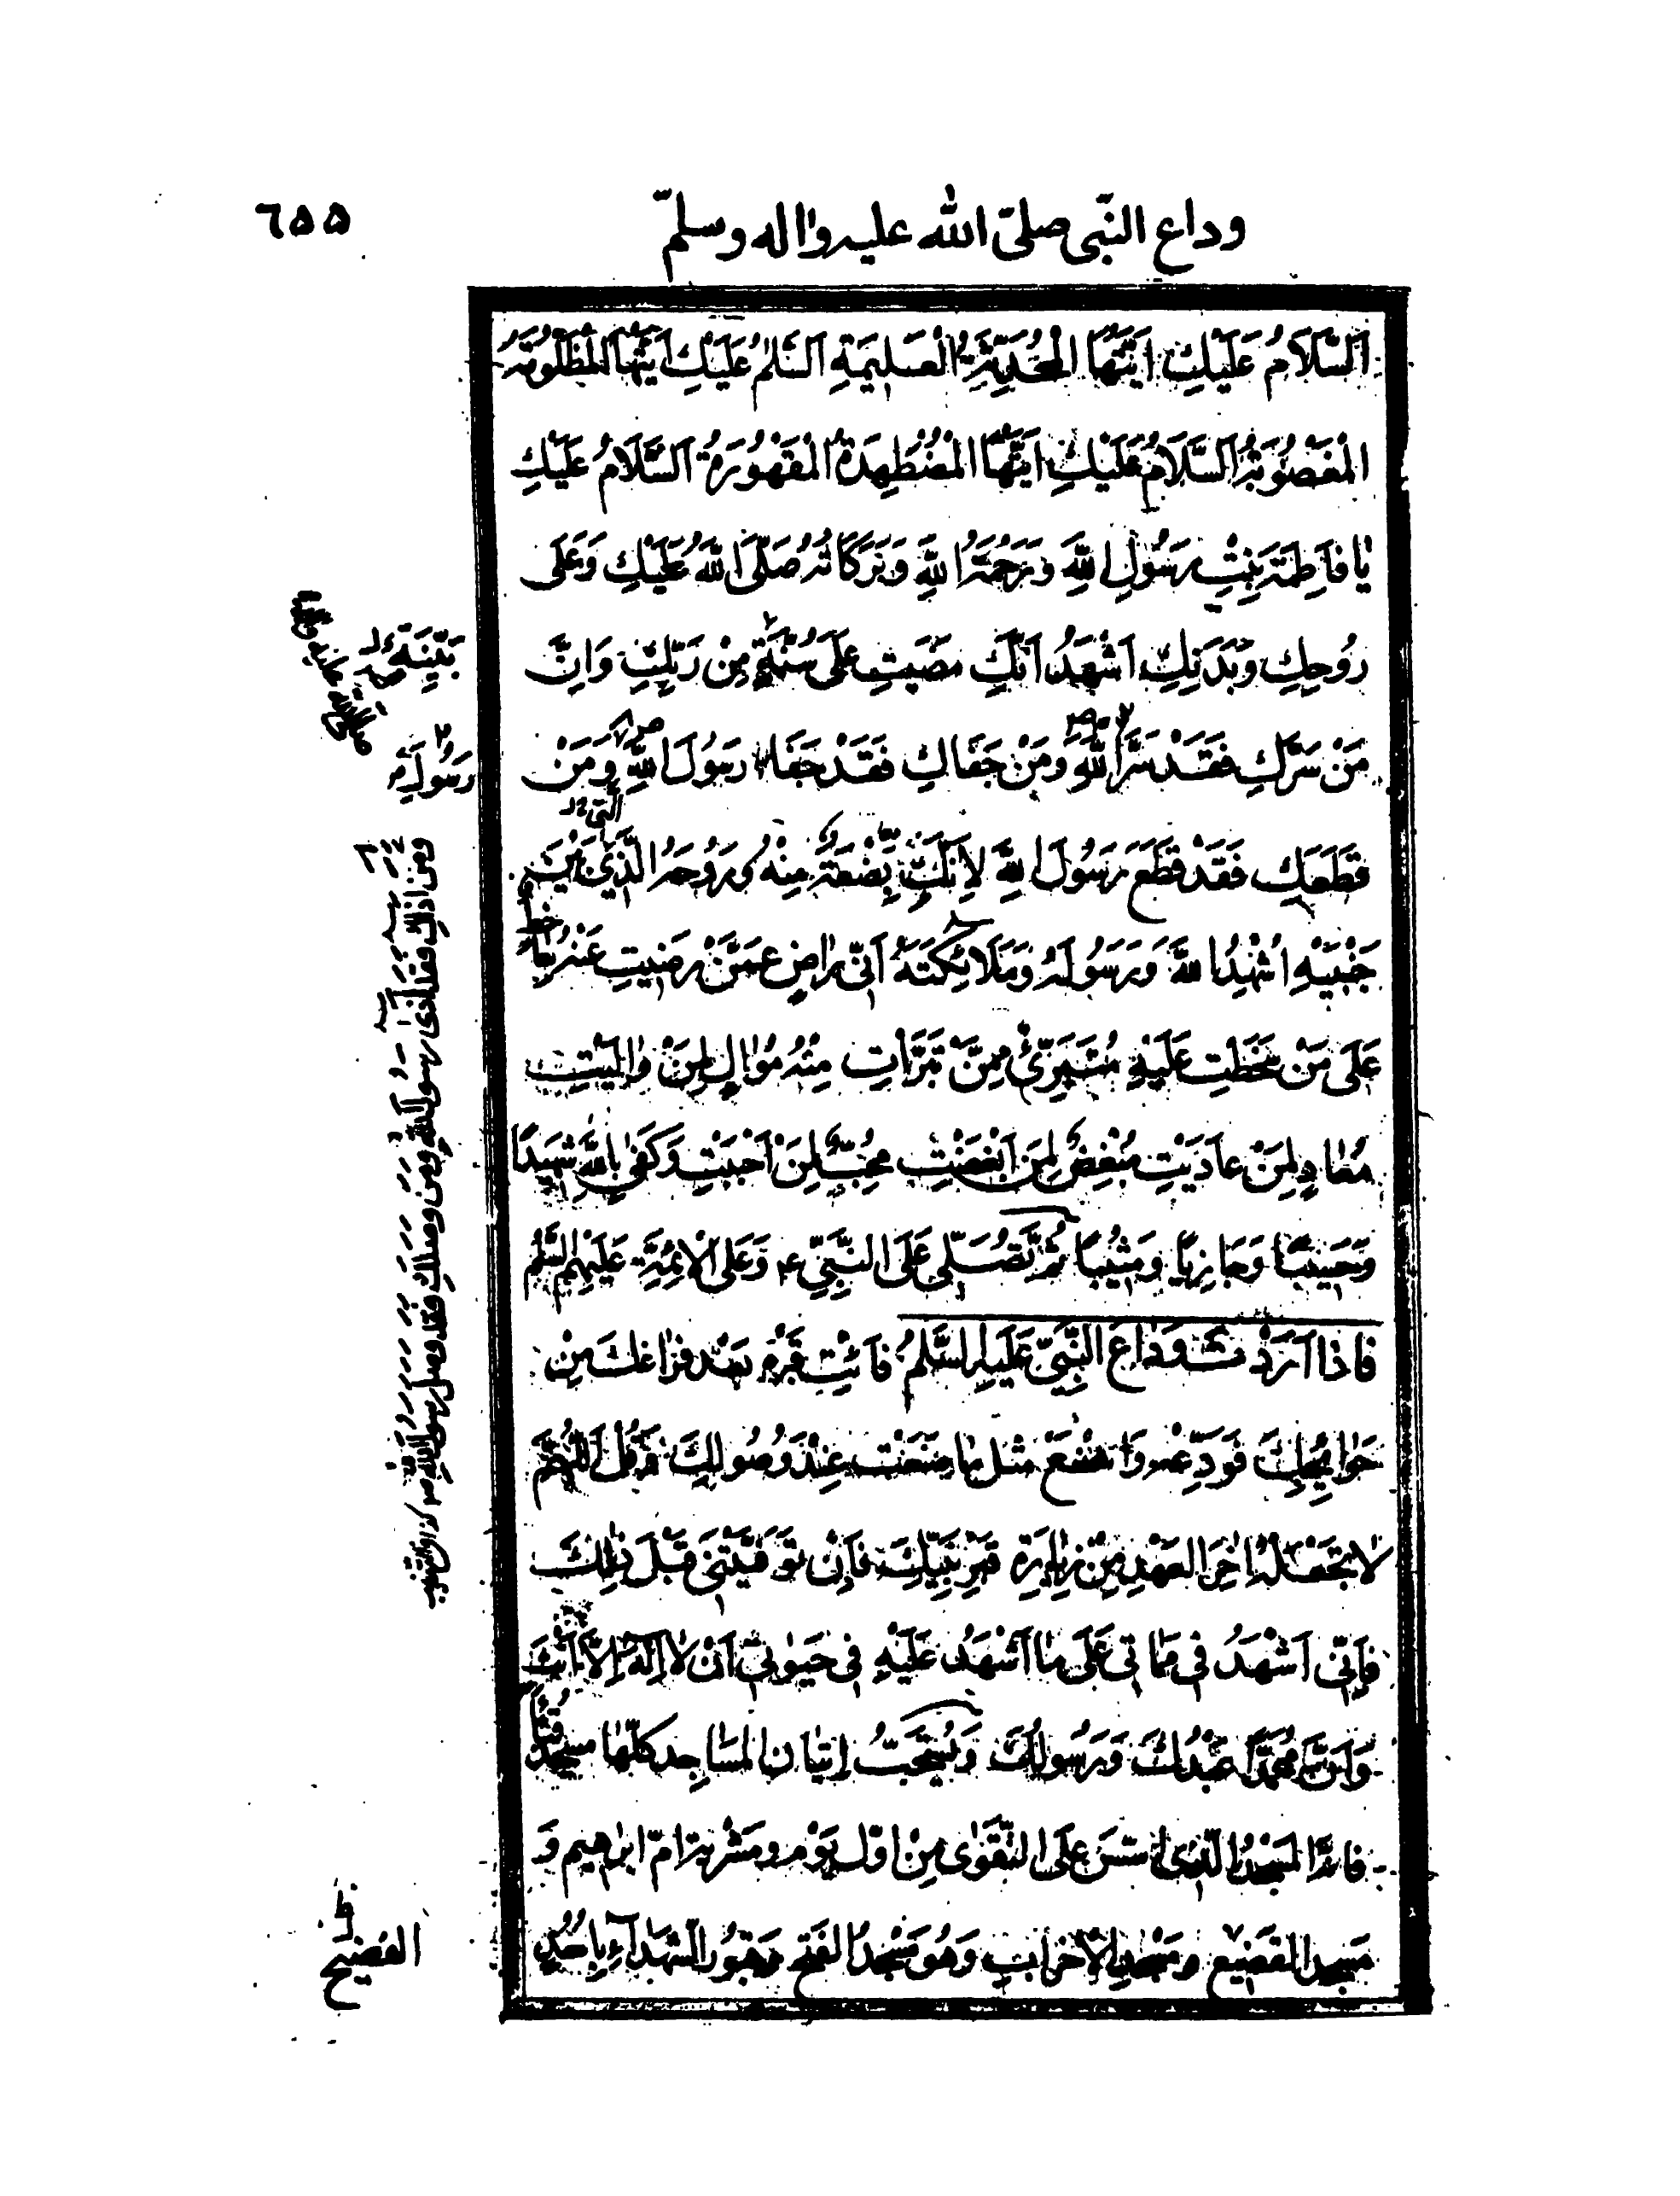 وداع النّبى صلىّ اللّه عليه واله وسلمّ
٦٥٥
اَلسَّلاَمُ عَلَيْكِ اَيَّتُهَا الْمُحَدَّثَةُ الْعَلِيمَةِ اَلسَّلٰمُ عَلَيْكِ اَيَّتُهَا الْمَظْلُومَةُ
الْمَغْصُوبَةُ اَلسَّلاَمُ عَلَيْكِ اَيَّتُهَا الْمُضْطَهِدَةُ الْمَقْهُورَةُ اَلسَّلاَمُ عَلَيْكِ
يٰا فَاطِمَةَ بِنْتِ رَسُولِ اللّٰهِ وَرَحْمَةُ اللّٰهِ وَبَرَكَاتُهُ صَلَّى اللّٰهُ عَلَيْكِ وَعَلَى
رُوحِكِ وَبَدَنِكِ اَشْهَدُ اَنَّكِ مَضَيْتِ عَلَى سُنَّةٍ مِنْ رَبِّكِ وَاَنَّ
بَيِّنَةٍ
مَنْ سَرَّكِ فَقَدْ سَرَّ اللّٰهَ وَمَنْ جَفَاكِ فَقَدْ جَفَا رَسُولَ اللّٰهِ وَمَنْ
رَسُولَ
قَطَعَكِ فَقَدْ قَطَعَ رَسُولَ اللّٰهِ لِاَنَّكِ بَضْعَةٌ مِنْهُ وَرُوحَهُ الَّذِى بَيْنَ
الّتى
جَنْبَيْهِ اُشْهِدُ اللّٰهَ وَرَسُولَهُ وَمَلَائِكَتَهُ اَنِّى رٰاضٍ عَمَّنْ رَضِيتِ عَنْهُ سٰاخِطٌ
عَلَى مَنْ سَخَطْتِ عَلَيْهِ مُتَبَرِّئٌ مِمَّنْ تَبَرَّاتِ مِنْهُ مُوٰالٍ لِمَنْ وٰالَيْتِ
مُعٰادٍ لِمَنْ عَادَيْتِ مُبْغِضٌ لِمَنْ اَبْغَضْتِ مُحِبٌّ لِمَنْ اَحْبَبْتِ وَكَفٰى بِاللّٰهِ شَهِيدًا
وَحَسِيبًا وَجَازِيًا وَمُثِيبًا ثُمَّ تُصَلِّى عَلَى النَّبِىِّ ع وَعَلَى الْاَئِمَّةِ عَلَيْهِمُ السَّلٰمُ
فَاذٰا اَرَدْتَ وَدٰاعَ النَّبِىِّ عَلَيْهِ السَّلٰمُ فَائْتِ قَبْرَهُ بَعْدَ فَرٰاغِكَ مِنْ
حَوٰائِجِكَ فَوَدِّعْهُ وَاصْنَعْ مِثْلَ مٰا صَنَعْتَ عِنْدَ وُصُولِكَ وَقُلْ اَللّٰهُمَّ
لاٰ تَجْعَلْهُ اٰخِرَ الْعَهْدِ مِنْ زِيٰارَةِ قَبْرِ نَبِيِّكَ فَاِنْ تَوَفَّيْتَنِى قَبْلَ ذٰلِكَ
فَاِنّى اَشْهَدُ فى مَمَاتى عَلَى مٰا اَشْهَدُ عَلَيْهِ فى حَيٰوتى اَنْ لاٰ اِلٰهَ اِلاَّ اَنْتَ
وَاَنَّ مُحَمَّدًا عَبْدُكَ وَرَسُولُكَ وَيُسْتَحَبُّ اِتيٰانُ الْمَسَاجِدِ كُلِّهٰا مَسْجِدُ قُبٰا
فَانَّهُ الْمَسْجِدُ الَّذى اُسِّسَ عَلَى التَّقْوٰى مِنْ اوّلِ يَوْمٍ وَمَشْرَبَةِ امِّ ابرٰهيم وَ
مَسجِد الفَضيخِ وَمَسْجِدِ الْاَحْزَابِ وَهُوَ مَسْجِدُ الْفَتْحِ وَقبُورُ الشُّهَدَآءِ بِاُحُدٍ
الفضيخ
ومن اذاك فقد اذى رسول الله ومن وصلك فقد وصل رسول الله ص